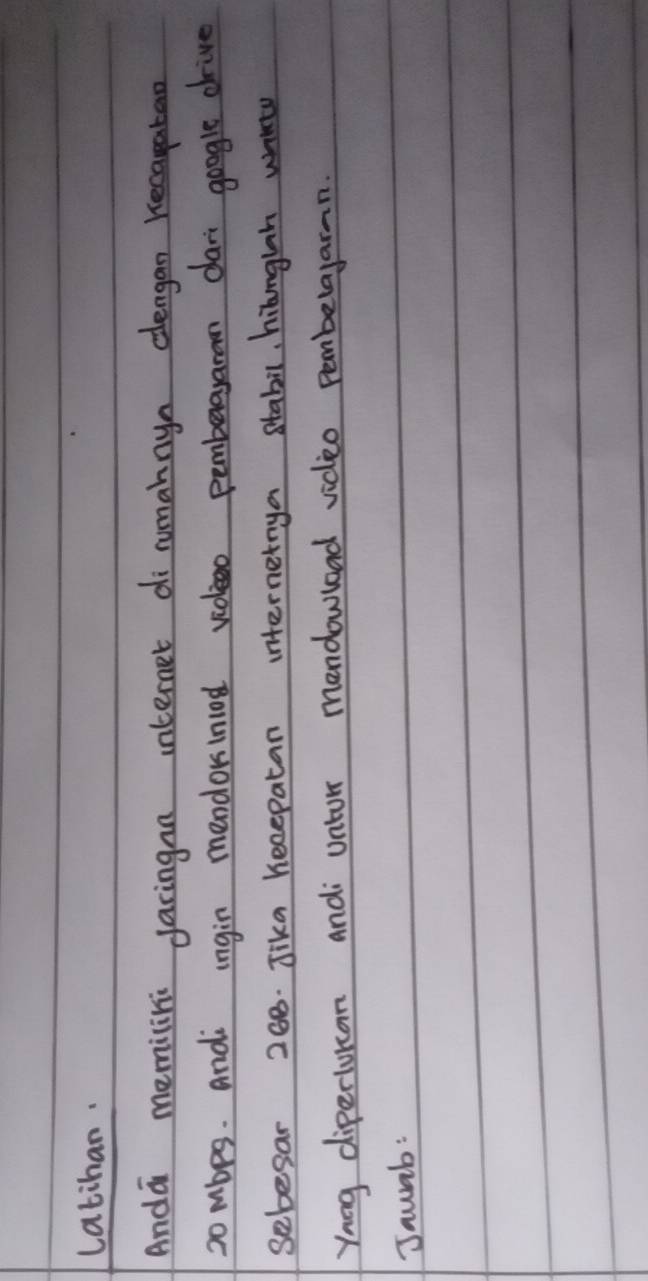 Latihan.
Andi memiliki Jaringan internet di rumahnya dengan kecapatan
20 Mbps. Andi ingin mendok video pembelajaran dari google drive
sebesar 2GB. Jika kecepatan internetnya stabil, hitunglah waktu
yang diperlukan Andi untuk mendowload video pembelajaran.
Jawab: